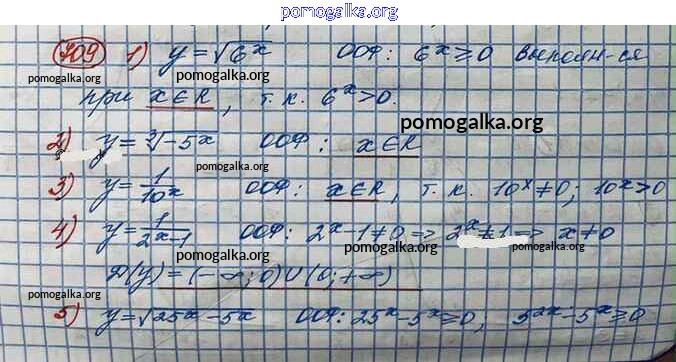 pomogalka.org
709 1) y = √6^x ООФ: 6^x ≥ 0 выполн-ся
pomogalka.org pomogalka.org
при x ∈ R, т.к. 6^x > 0.
pomogalka.org
2) y = ∛-5^x ООФ: x ∈ R
pomogalka.org
3) y = 1/10^x ООФ: x ∈ R, т.к. 10^x ≠ 0; 10^x > 0
pomogalka.org pomogalka.org
4) y = 1/2^x-1 ООФ: 2^x - 1 ≠ 0 => 2^x ≠ 1 => x ≠ 0
pomogalka.org pomogalka.org pomogalka.org
Д(y) = (-∞; 0) ∪ (0; +∞)
pomogalka.org
5) y = √25^x - 5^x ООФ: 25^x - 5^x ≥ 0; 5^2x - 5^x ≥ 0
pomogalka.org pomogalka.org